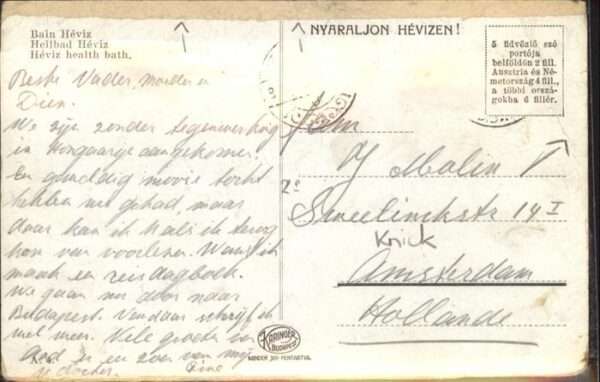 Bain Hévíz
Heilbad Hévíz
Hévíz health bath.
NYARALJON HÉVIZEN!
5 üdvözlő szó
portója
belföldön 2 fill.
Ausztria és Né-
metország 4 fill.,
a többi orszá-
gokba 6 fillér.
Beste Vader, moeder en
Dien.
We zijn zonder tegenwerking
in Hongarije aangekomen.
En geweldig mooie tocht
hebben we gehad, maar
daar kan ik als ik terug
kom van voorlezen. Want ik
maak en reisdagboek.
We gaan nu door naar
Budapest. Vandaar schrijf ik
wel meer. Vele groeten van
en zoen van mijn
je dochter. Dine
Fam
J Molin
2º
Sweelinckstr 14 I
Krick
Amsterdam
Hollande
KARINGER
BUDAPEST